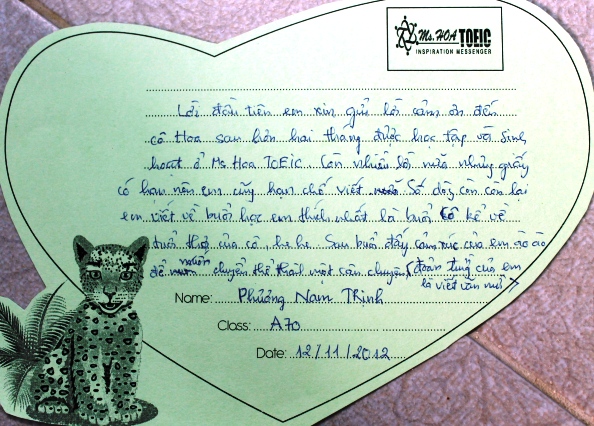 Ms. HOA TOEIC
INSPIRATION MESSENGER
Lời đầu tiên em xin gửi lời cảm ơn đến
cô Hoa sau hơn hai tháng được học tập và sinh
hoạt ở Ms Hoa TOEIC. Còn nhiều lời nữa nhưng giấy
có hạn nên em cũng hạn chế viết. Số dòng còn lại
em viết về buổi học em thích nhất là buổi cô kể về
tuổi thơ của cô, he he. Sau buổi đấy cảm xúc của em dào dào
để muốn chuyển thể thành một câu chuyện (đoản của em
là viết văn mà)
Name: Phương Nam Thịnh
Class: A70
Date: 12/11/2012